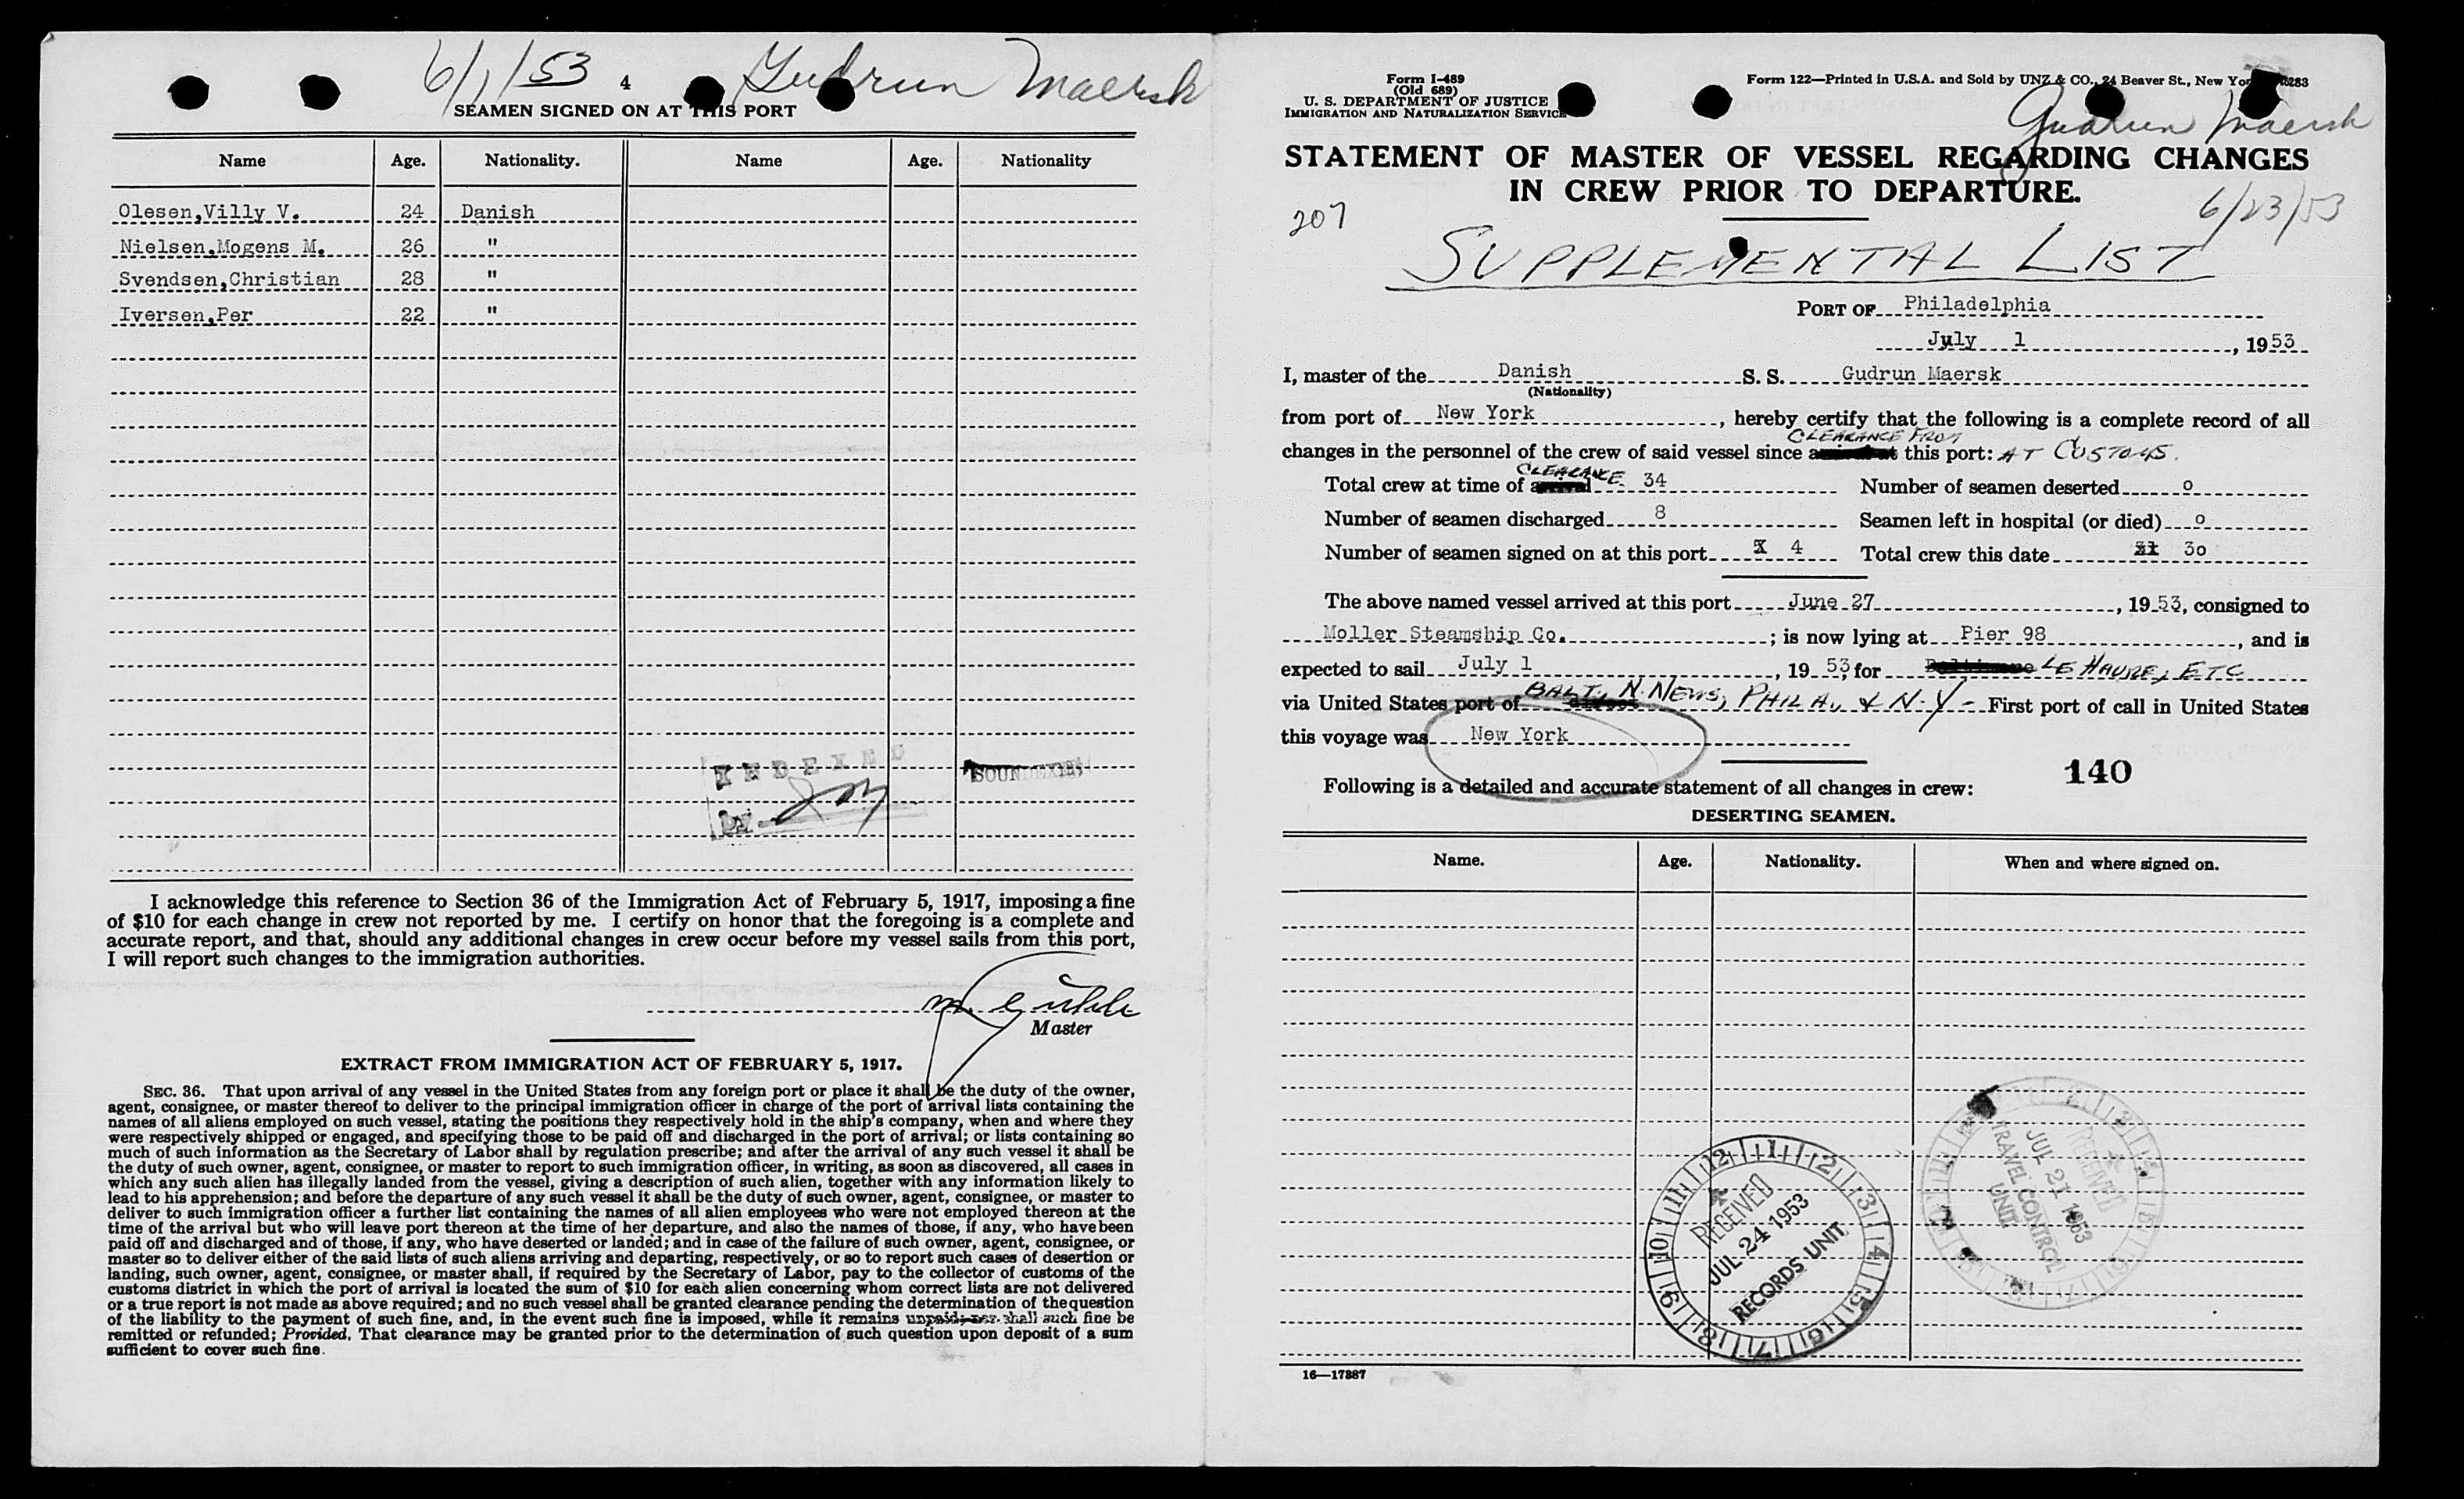 6/1/53 4 Gudrun Maersk
SEAMEN SIGNED ON AT THIS PORT
Name Age. Nationality. Name Age. Nationality
Olesen,Villy V. 24 Danish
Nielsen,Mogens M. 26 "
Svendsen,Christian 28 "
Iversen,Per 22 "
INDEXED
SOUNDEXED
By
I acknowledge this reference to Section 36 of the Immigration Act of February 5, 1917, imposing a fine
of $10 for each change in crew not reported by me. I certify on honor that the foregoing is a complete and
accurate report, and that, should any additional changes in crew occur before my vessel sails from this port,
I will report such changes to the immigration authorities.
Master
EXTRACT FROM IMMIGRATION ACT OF FEBRUARY 5, 1917.
SEC. 36. That upon arrival of any vessel in the United States from any foreign port or place it shall be the duty of the owner,
agent, consignee, or master thereof to deliver to the principal immigration officer in charge of the port of arrival lists containing the
names of all aliens employed on such vessel, stating the positions they respectively hold in the ship's company, when and where they
were respectively shipped or engaged, and specifying those to be paid off and discharged in the port of arrival; or lists containing so
much of such information as the Secretary of Labor shall by regulation prescribe; and after the arrival of any such vessel it shall be
the duty of such owner, agent, consignee, or master to report to such immigration officer, in writing, as soon as discovered, all cases in
which any such alien has illegally landed from the vessel, giving a description of such alien, together with any information likely to
lead to his apprehension; and before the departure of any such vessel it shall be the duty of such owner, agent, consignee, or master to
deliver to such immigration officer a further list containing the names of all alien employees who were not employed thereon at the
time of the arrival but who will leave port thereon at the time of her departure, and also the names of those, if any, who have been
paid off and discharged and of those, if any, who have deserted or landed; and in case of the failure of such owner, agent, consignee, or
master so to deliver either of the said lists of such aliens arriving and departing, respectively, or so to report such cases of desertion or
landing, such owner, agent, consignee, or master shall, if required by the Secretary of Labor, pay to the collector of customs of the
customs district in which the port of arrival is located the sum of $10 for each alien concerning whom correct lists are not delivered
or a true report is not made as above required; and no such vessel shall be granted clearance pending the determination of the question
of the liability to the payment of such fine, and, in the event such fine is imposed, while it remains unpaid; nor shall such fine be
remitted or refunded; Provided, That clearance may be granted prior to the determination of such question upon deposit of a sum
sufficient to cover such fine.
Form I-489
(Old 689)
U. S. DEPARTMENT OF JUSTICE
IMMIGRATION AND NATURALIZATION SERVICE
Form 122—Printed in U.S.A. and Sold by UNZ & CO., 24 Beaver St., New York
Gudrun Maersk
STATEMENT OF MASTER OF VESSEL REGARDING CHANGES
IN CREW PRIOR TO DEPARTURE.
207 6/23/53
SUPPLEMENTAL LIST
PORT OF Philadelphia
July 1, 1953
I, master of the Danish S. S. Gudrun Maersk
(Nationality)
from port of New York, hereby certify that the following is a complete record of all
CLEARANCE FROM
changes in the personnel of the crew of said vessel since arrival at this port: AT CUSTOMS.
CLEARANCE
Total crew at time of arrival 34 Number of seamen deserted o
Number of seamen discharged 8 Seamen left in hospital (or died) o
Number of seamen signed on at this port 4 Total crew this date 31 30
The above named vessel arrived at this port June 27, 1953, consigned to
Moller Steamship Co.; is now lying at Pier 98, and is
expected to sail July 1, 1953, for Baltimore LE HAVRE, ETC
via United States port of direct BALT., N. NEWS, PHILA., & N.Y - First port of call in United States
this voyage was New York
140
Following is a detailed and accurate statement of all changes in crew:
DESERTING SEAMEN.
Name. Age. Nationality. When and where signed on.
RECEIVED
JUL 24 1953
RECORDS UNIT
12 1 2 3 4 5 6 7 8 9 10 11
RECEIVED
JUL 21 1953
TRAVEL CONTROL
UNIT
16—17887